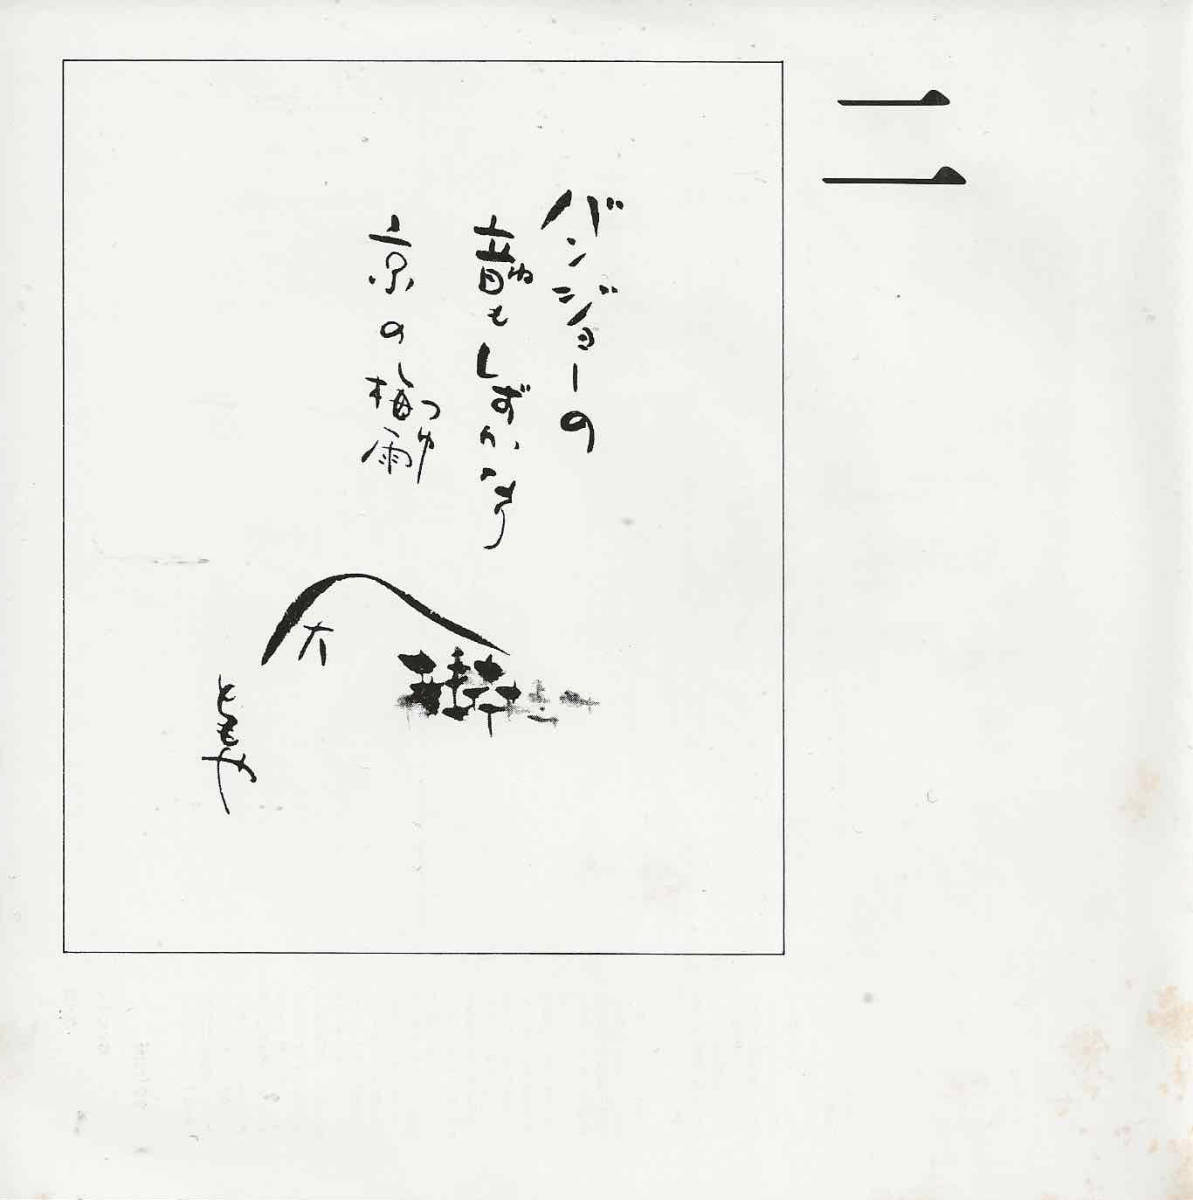 二
バンジョーの
音ねもしずかなり
京の梅雨つゆ
大
ともや